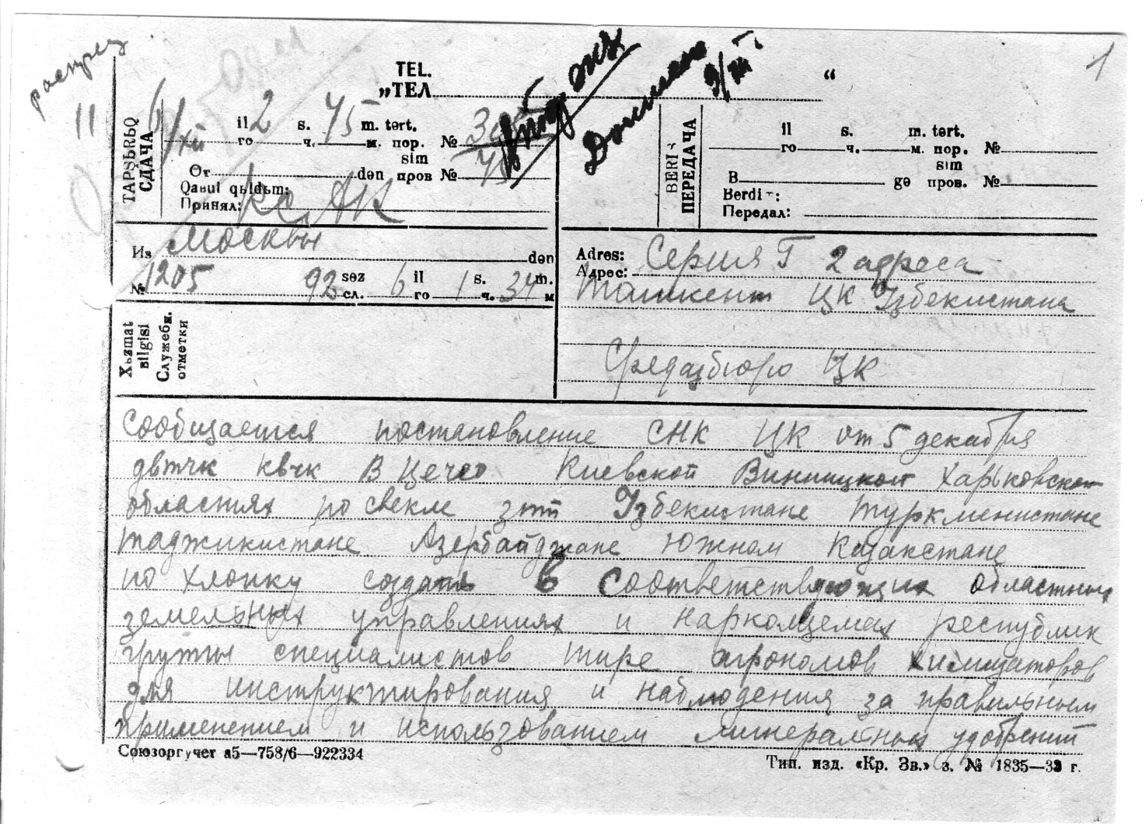 распред
11
1
TEL.
„ТЕЛ. “
TAPŞЬRЬQ
СДАЧА
6/XII il 2 s. 45 m. tərt.
го ч. м. пор. №
sim
Ot dən пров №
Qabul qьldьm:
Принял:
BERIŞ
ПЕРЕДАЧА
il s. m. tərt.
го ч. м. пор. №
sim
В gə пров. №
Berdim:
Передал:
Из Москвы dən
№ 1205 92 səz сл. 6 il го 1 s. ч. 34 m. м
Xьzmət bilgisi
Служебн. отметки
Adres: Серия Г 2 адреса
Адрес: Ташкент ЦК Узбекистана
Средазбюро ЦК
Сообщается постановление СНК ЦК от 5 декабря
двтчк квчк В Киевской Винницкой Харьковской
областях по свекле зпт Узбекистане Туркменистане
Таджикистане Азербайджане Южном Казакстане
по хлопку создать в соответствующих областных
земельных управлениях и наркомземах республик
группы специалистов тире агрономов химизаторов
для инструктирования и наблюдения за правильным
применением и использованием минеральных удобрений
Союзоргучет а5—758/6—922334
Тип. изд. «Кр. Зв.» з. № 1835—33 г.